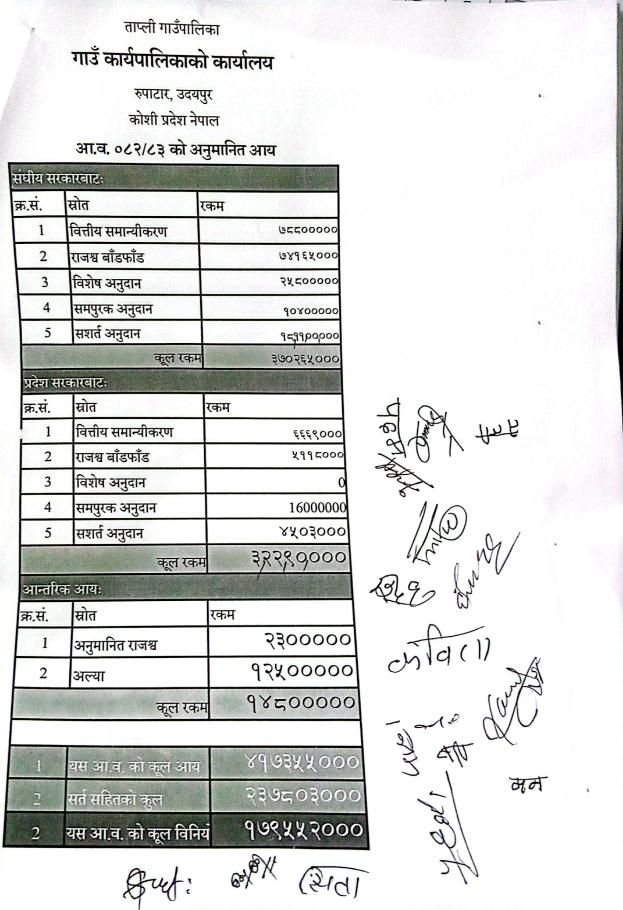 ताप्ली गाउँपालिका
गाउँ कार्यपालिकाको कार्यालय
रुपाटार, उदयपुर
कोशी प्रदेश नेपाल
आ.व. ०८२/८३ को अनुमानित आय
संघीय सरकारबाटः
क्र.सं. स्रोत रकम
1 वित्तीय समान्यीकरण ७८८०००००
2 राजश्व बाँडफाँड ७४१६५०००
3 विशेष अनुदान २५८०००००
4 समपुरक अनुदान १०४०००००
5 सशर्त अनुदान १८११०००००
कूल रकम ३७०२६५०००
प्रदेश सरकारबाटः
क्र.सं. स्रोत रकम
1 वित्तीय समान्यीकरण ६६६९०००
2 राजश्व बाँडफाँड ५११८०००
3 विशेष अनुदान 0
4 समपुरक अनुदान 16000000
5 सशर्त अनुदान ४५०३०००
कूल रकम ३२२९००००
आन्तरिक आयः
क्र.सं. स्रोत रकम
1 अनुमानित राजश्व २३०००००
2 अल्या १२५०००००
कूल रकम १४८०००००
1 यस आ.व. को कूल आय ४१७३५५०००
2 सर्त सहितको कुल २३७८०३०००
2 यस आ.व. को कूल विनिय १७९५५२०००
कविता
मन
सिता